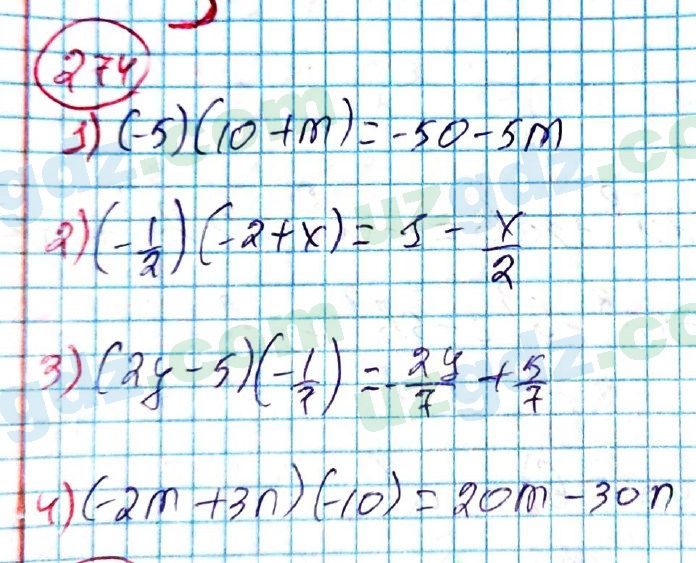 274
1) (-5)(10+m) = -50-5m
2) (-1/2)(-2+x) = 1 - x/2
3) (2y-5)(-1/7) = -2y/7 + 5/7
4) (-2m+3n)(-10) = 20m-30n
uzgdz.com
uzgdz.com